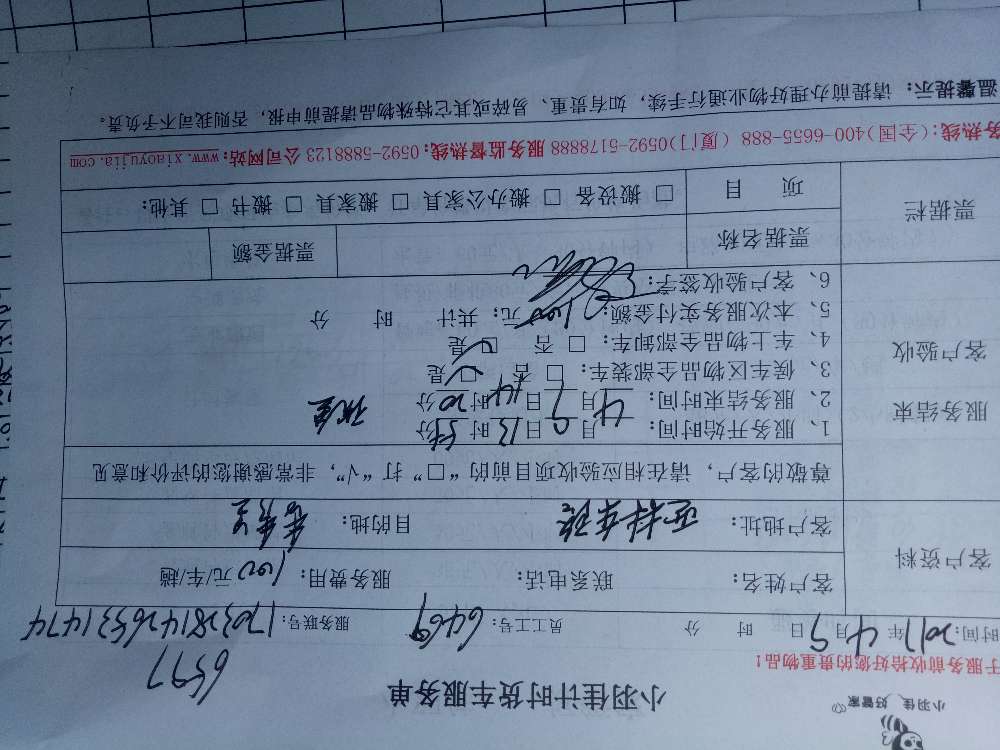 小羽佳 好管家
小羽佳计时货车服务单
6597
于服务前收拾好您的贵重物品！
时间：2017年4月9日 时 分 员工工号：6469 服务联号：1703281426531474
客户资料
客户姓名： 联系电话： 服务费用：100元/车/趟
客户地址： 目的地：
尊敬的客户，请在相应验收项目前的“□”打“√”，非常感谢您的评价和意见
服务结束
客户验收
1、服务开始时间：4月9日13时54分
2、服务结束时间：4月9日14时20分
3、候车区物品全部装车：□ 否 □ 是
4、车上物品全部卸车：□ 否 □ 是
5、本次服务实付金额：100元；共计 时 分
6、客户验收签字：
票据栏
票据名称 票据金额
项 目 □ 搬设备 □ 搬办公家具 □ 搬家具 □ 搬书 □ 其他：
务热线：(全国)400-6655-888 (厦门)0592-5178888 服务监督热线：0592-5888123 公司网站：www.xiaoyujia.com
温馨提示：请提前办理好物业通行手续，如有贵重、易碎或其它特殊物品请提前申报，否则我司不予负责。